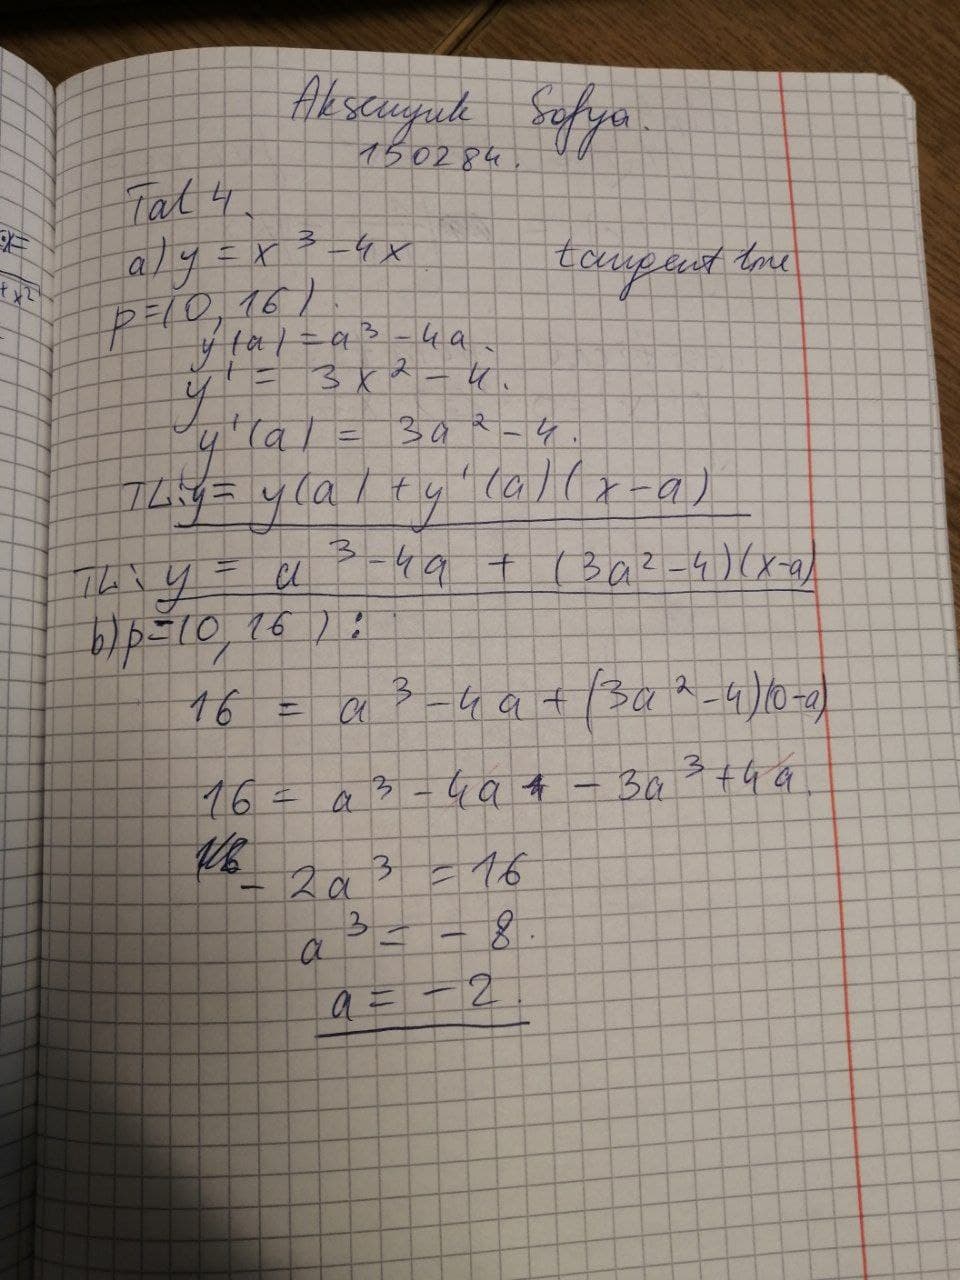 Aksenyuk Sofya.
150284.
Tal 4.
a) y = x³ - 4x tangent line
p = (0, 16).
y(a) = a³ - 4a.
y' = 3x² - 4.
y'(a) = 3a² - 4.
TL: y = y(a) + y'(a)(x-a)
TL: y = a³ - 4a + (3a² - 4)(x-a)
b) p = (0, 16):
16 = a³ - 4a + (3a² - 4)(0-a)
16 = a³ - 4a - 3a³ + 4a.
- 2a³ = 16
a³ = - 8.
a = - 2.
x=
+x²